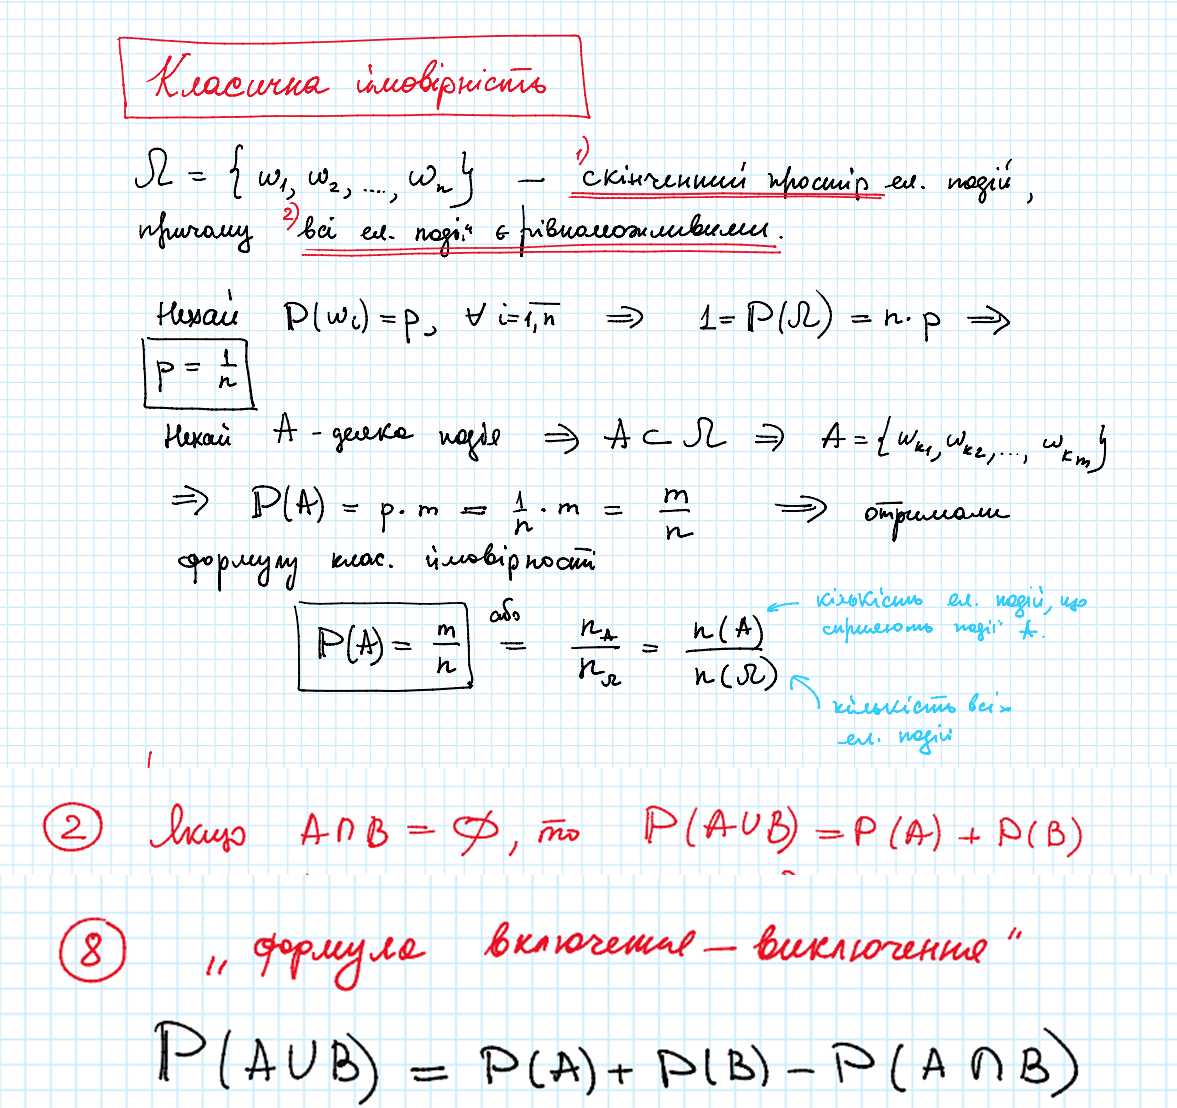 Класична ймовірність
Ω = { ω₁, ω₂, ...., ωₙ } — 1) скінченний простір ел. подій,
причому 2) всі ел. події є рівноможливими.
Нехай P(ωᵢ) = p, ∀ i = 1,n ⇒ 1 = P(Ω) = n · p ⇒
p = 1/n
Нехай A - деяка подія ⇒ A ⊂ Ω ⇒ A = {ωₖ₁, ωₖ₂, ..., ωₖₘ}
⇒ P(A) = p · m = 1/n · m = m/n ⇒ отримали
формулу клас. ймовірності
P(A) = m/n або = n_A/n_Ω = n(A)/n(Ω)
кількість ел. подій, що
сприяють події A.
кількість всіх
ел. подій
② Якщо A ∩ B = ∅, то P(A ∪ B) = P(A) + P(B)
⑧ „формула включення – виключення“
P(A ∪ B) = P(A) + P(B) – P(A ∩ B)